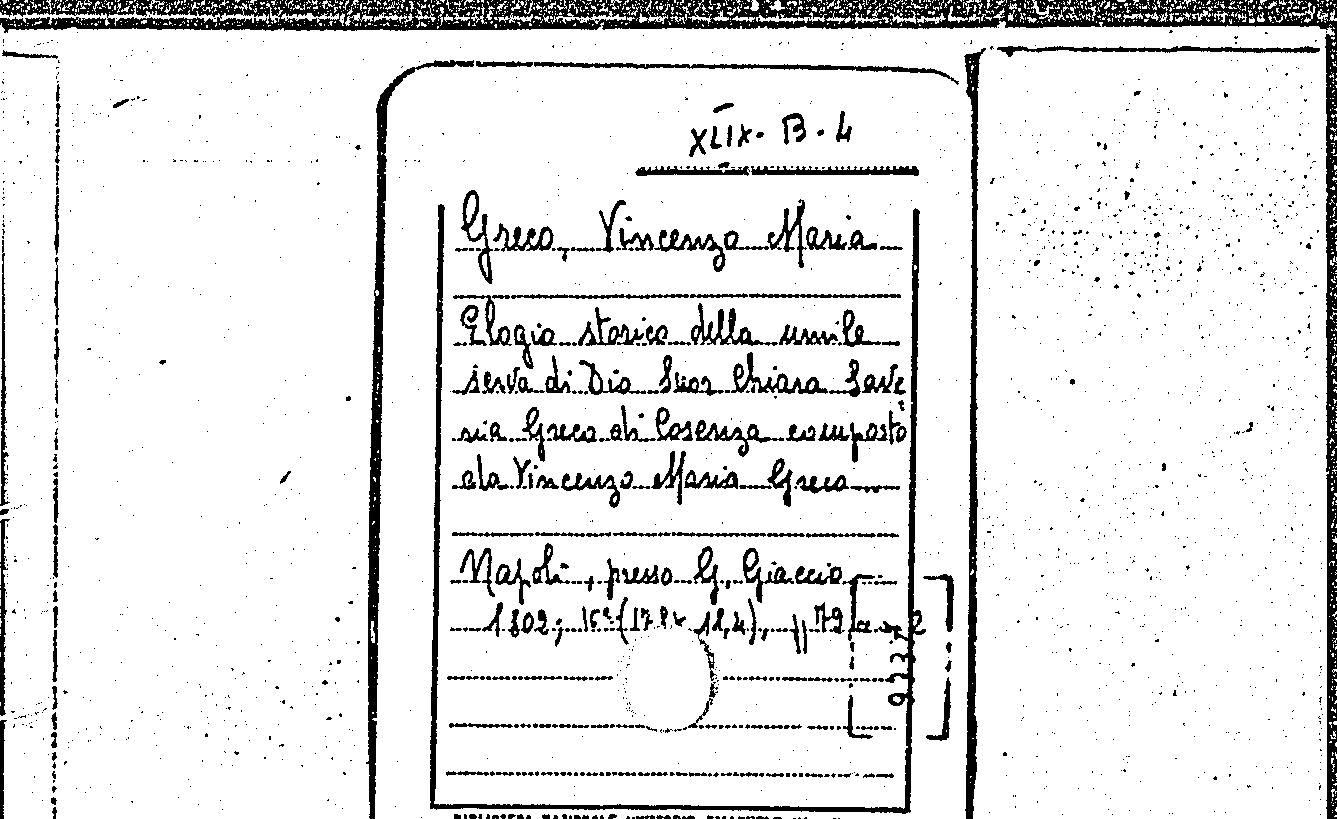 XLIX. B. 4
Greco, Vincenzo Maria
Elogio storico della umile
serva di Dio Suor Chiara Save
ria Greco di Cosenza composto
da Vincenzo Maria Greco
Napoli, presso G. Giaccio
1802; 16° (17,8x 11,4), 79
BIBLIOTECA NAZIONALE VITTORIO EMANUELE